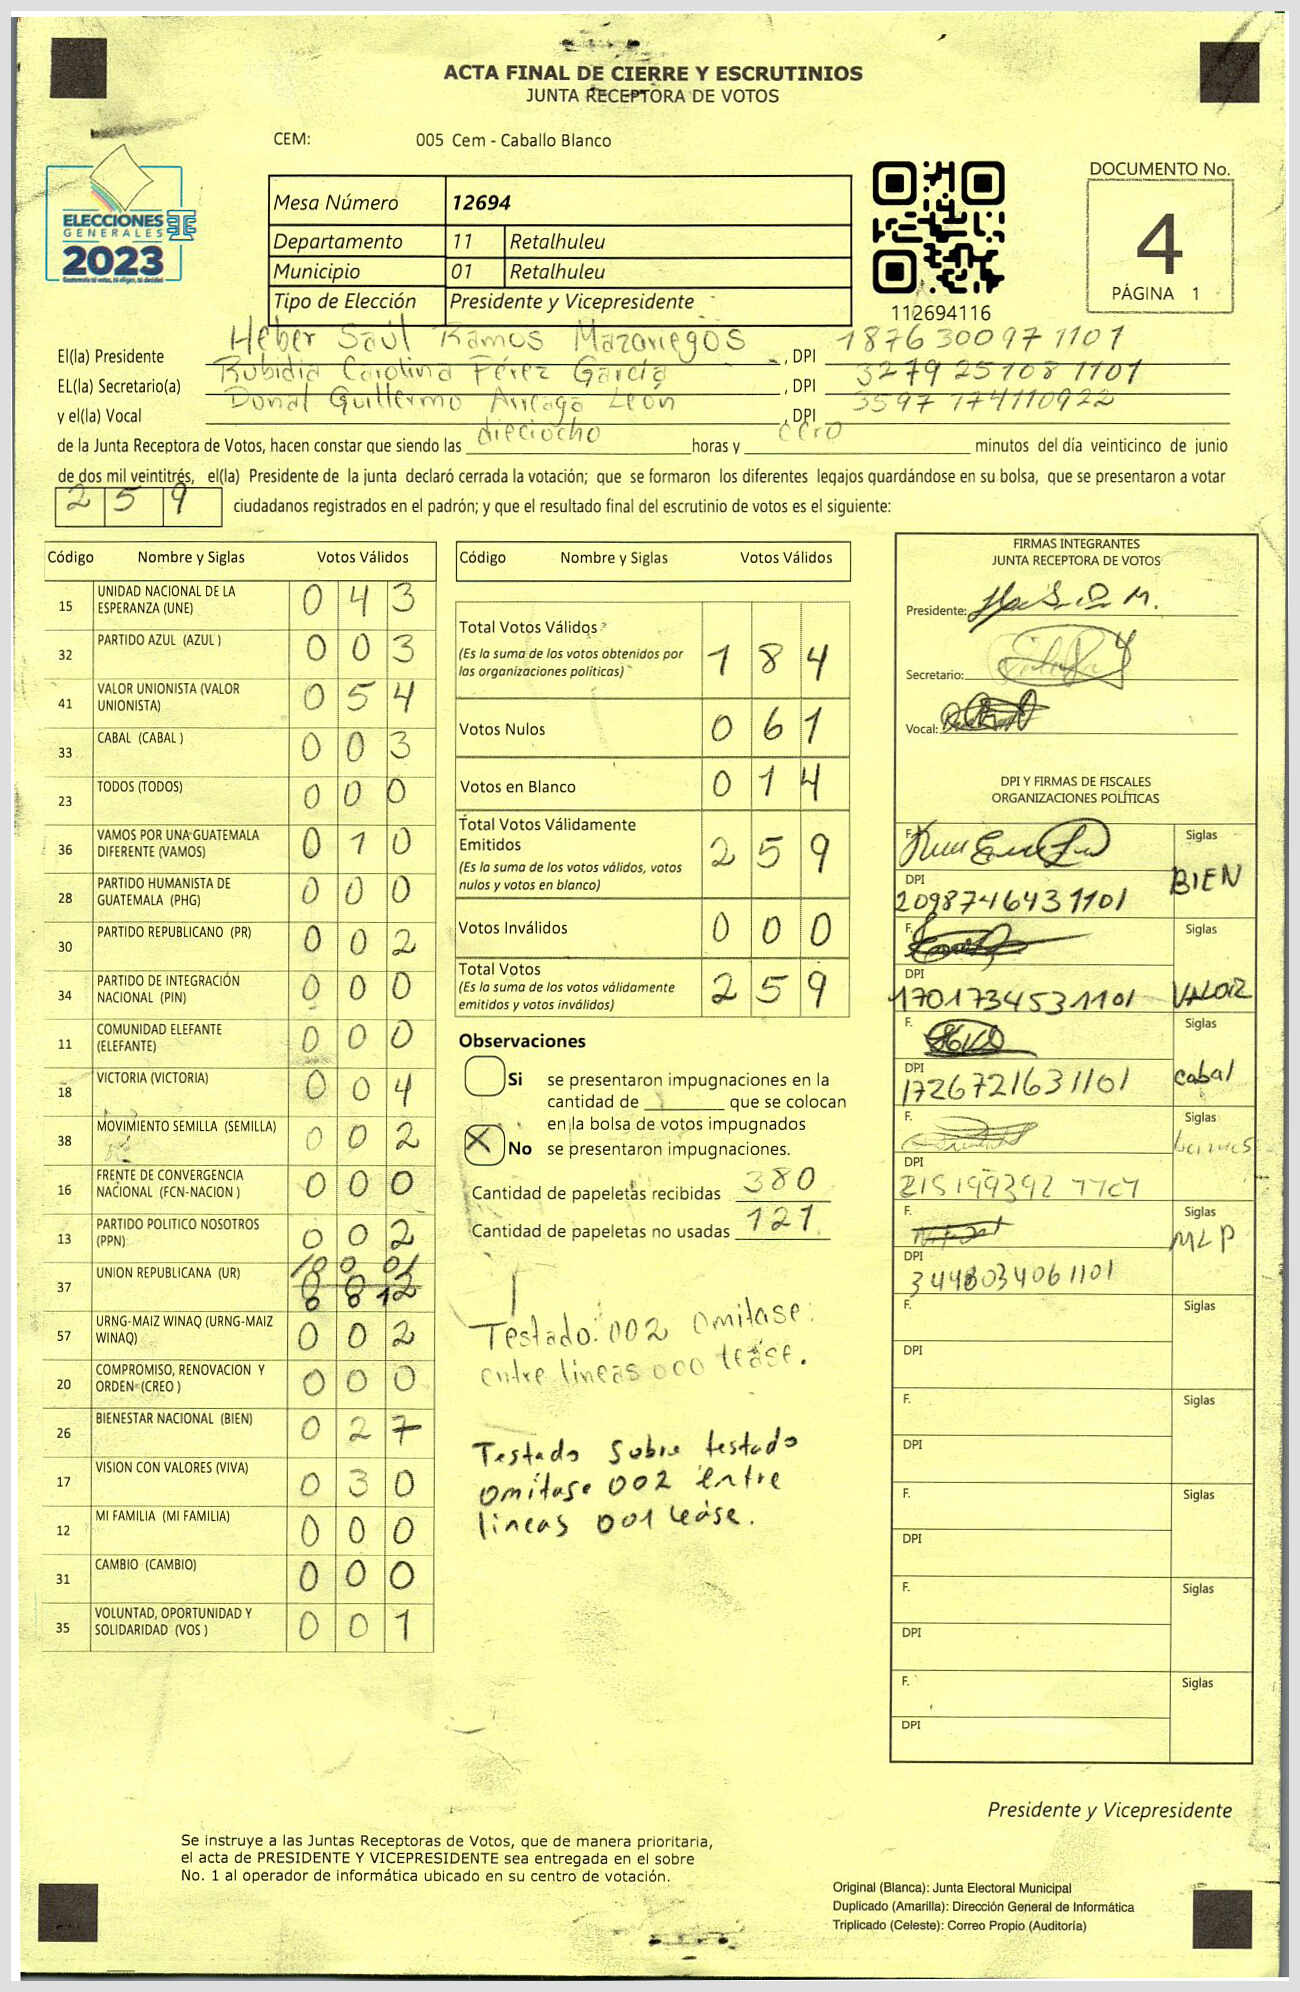 ACTA FINAL DE CIERRE Y ESCRUTINIOS
JUNTA RECEPTORA DE VOTOS
CEM: 005 Cem - Caballo Blanco
ELECCIONES
GENERALES
2023
Mesa Número 12694
Departamento 11 Retalhuleu
Municipio 01 Retalhuleu
Tipo de Elección Presidente y Vicepresidente
112694116
DOCUMENTO No.
4
PÁGINA 1
El(la) Presidente Heber Saúl Ramos Mazariegos, DPI 1876300971101
EL(la) Secretario(a) Rubidia Carolina Pérez García, DPI 3279251081101
y el(la) Vocal Donal Guillermo Arreaga León, DPI 3597174110922
de la Junta Receptora de Votos, hacen constar que siendo las dieciocho horas y cero minutos del día veinticinco de junio
de dos mil veintitrés, el(la) Presidente de la junta declaró cerrada la votación; que se formaron los diferentes legajos guardándose en su bolsa, que se presentaron a votar
259 ciudadanos registrados en el padrón; y que el resultado final del escrutinio de votos es el siguiente:
Código Nombre y Siglas Votos Válidos
15 UNIDAD NACIONAL DE LA ESPERANZA (UNE) 0 4 3
32 PARTIDO AZUL (AZUL ) 0 0 3
41 VALOR UNIONISTA (VALOR UNIONISTA) 0 5 4
33 CABAL (CABAL ) 0 0 3
23 TODOS (TODOS) 0 0 0
36 VAMOS POR UNA GUATEMALA DIFERENTE (VAMOS) 0 1 0
28 PARTIDO HUMANISTA DE GUATEMALA (PHG) 0 0 0
30 PARTIDO REPUBLICANO (PR) 0 0 2
34 PARTIDO DE INTEGRACIÓN NACIONAL (PIN) 0 0 0
11 COMUNIDAD ELEFANTE (ELEFANTE) 0 0 0
18 VICTORIA (VICTORIA) 0 0 4
38 MOVIMIENTO SEMILLA (SEMILLA) 0 0 2
16 FRENTE DE CONVERGENCIA NACIONAL (FCN-NACION ) 0 0 0
13 PARTIDO POLITICO NOSOTROS (PPN) 0 0 2
37 UNION REPUBLICANA (UR)
57 URNG-MAIZ WINAQ (URNG-MAIZ WINAQ) 0 0 2
20 COMPROMISO, RENOVACION Y ORDEN (CREO ) 0 0 0
26 BIENESTAR NACIONAL (BIEN) 0 2 7
17 VISION CON VALORES (VIVA) 0 3 0
12 MI FAMILIA (MI FAMILIA) 0 0 0
31 CAMBIO (CAMBIO) 0 0 0
35 VOLUNTAD, OPORTUNIDAD Y SOLIDARIDAD (VOS ) 0 0 1
Código Nombre y Siglas Votos Válidos
Total Votos Válidos
(Es la suma de los votos obtenidos por
las organizaciones políticas) 1 8 4
Votos Nulos 0 6 1
Votos en Blanco 0 1 4
Total Votos Válidamente
Emitidos 2 5 9
(Es la suma de los votos válidos, votos
nulos y votos en blanco)
Votos Inválidos 0 0 0
Total Votos
(Es la suma de los votos válidamente
emitidos y votos inválidos) 2 5 9
Observaciones
Si se presentaron impugnaciones en la
cantidad de ________ que se colocan
en la bolsa de votos impugnados
X No se presentaron impugnaciones.
Cantidad de papeletas recibidas 380
Cantidad de papeletas no usadas 121
Testado: 002 Omitase:
entre lineas 000 léase.
Testado Sobre testado
omitase 002 entre
lineas 001 léase.
FIRMAS INTEGRANTES
JUNTA RECEPTORA DE VOTOS
Presidente:
Secretario:
Vocal:
DPI Y FIRMAS DE FISCALES
ORGANIZACIONES POLÍTICAS
F. Siglas
DPI BIEN
2098746431101
F. Siglas
DPI
1701734531101 VALOR
F. Siglas
DPI cabal
1726721631101
F. Siglas
DPI
F. Siglas
MLP
DPI
3448034061101
F. Siglas
DPI
F. Siglas
DPI
F. Siglas
DPI
F. Siglas
DPI
F. Siglas
DPI
Presidente y Vicepresidente
Se instruye a las Juntas Receptoras de Votos, que de manera prioritaria,
el acta de PRESIDENTE Y VICEPRESIDENTE sea entregada en el sobre
No. 1 al operador de informática ubicado en su centro de votación.
Original (Blanca): Junta Electoral Municipal
Duplicado (Amarilla): Dirección General de Informática
Triplicado (Celeste): Correo Propio (Auditoría)